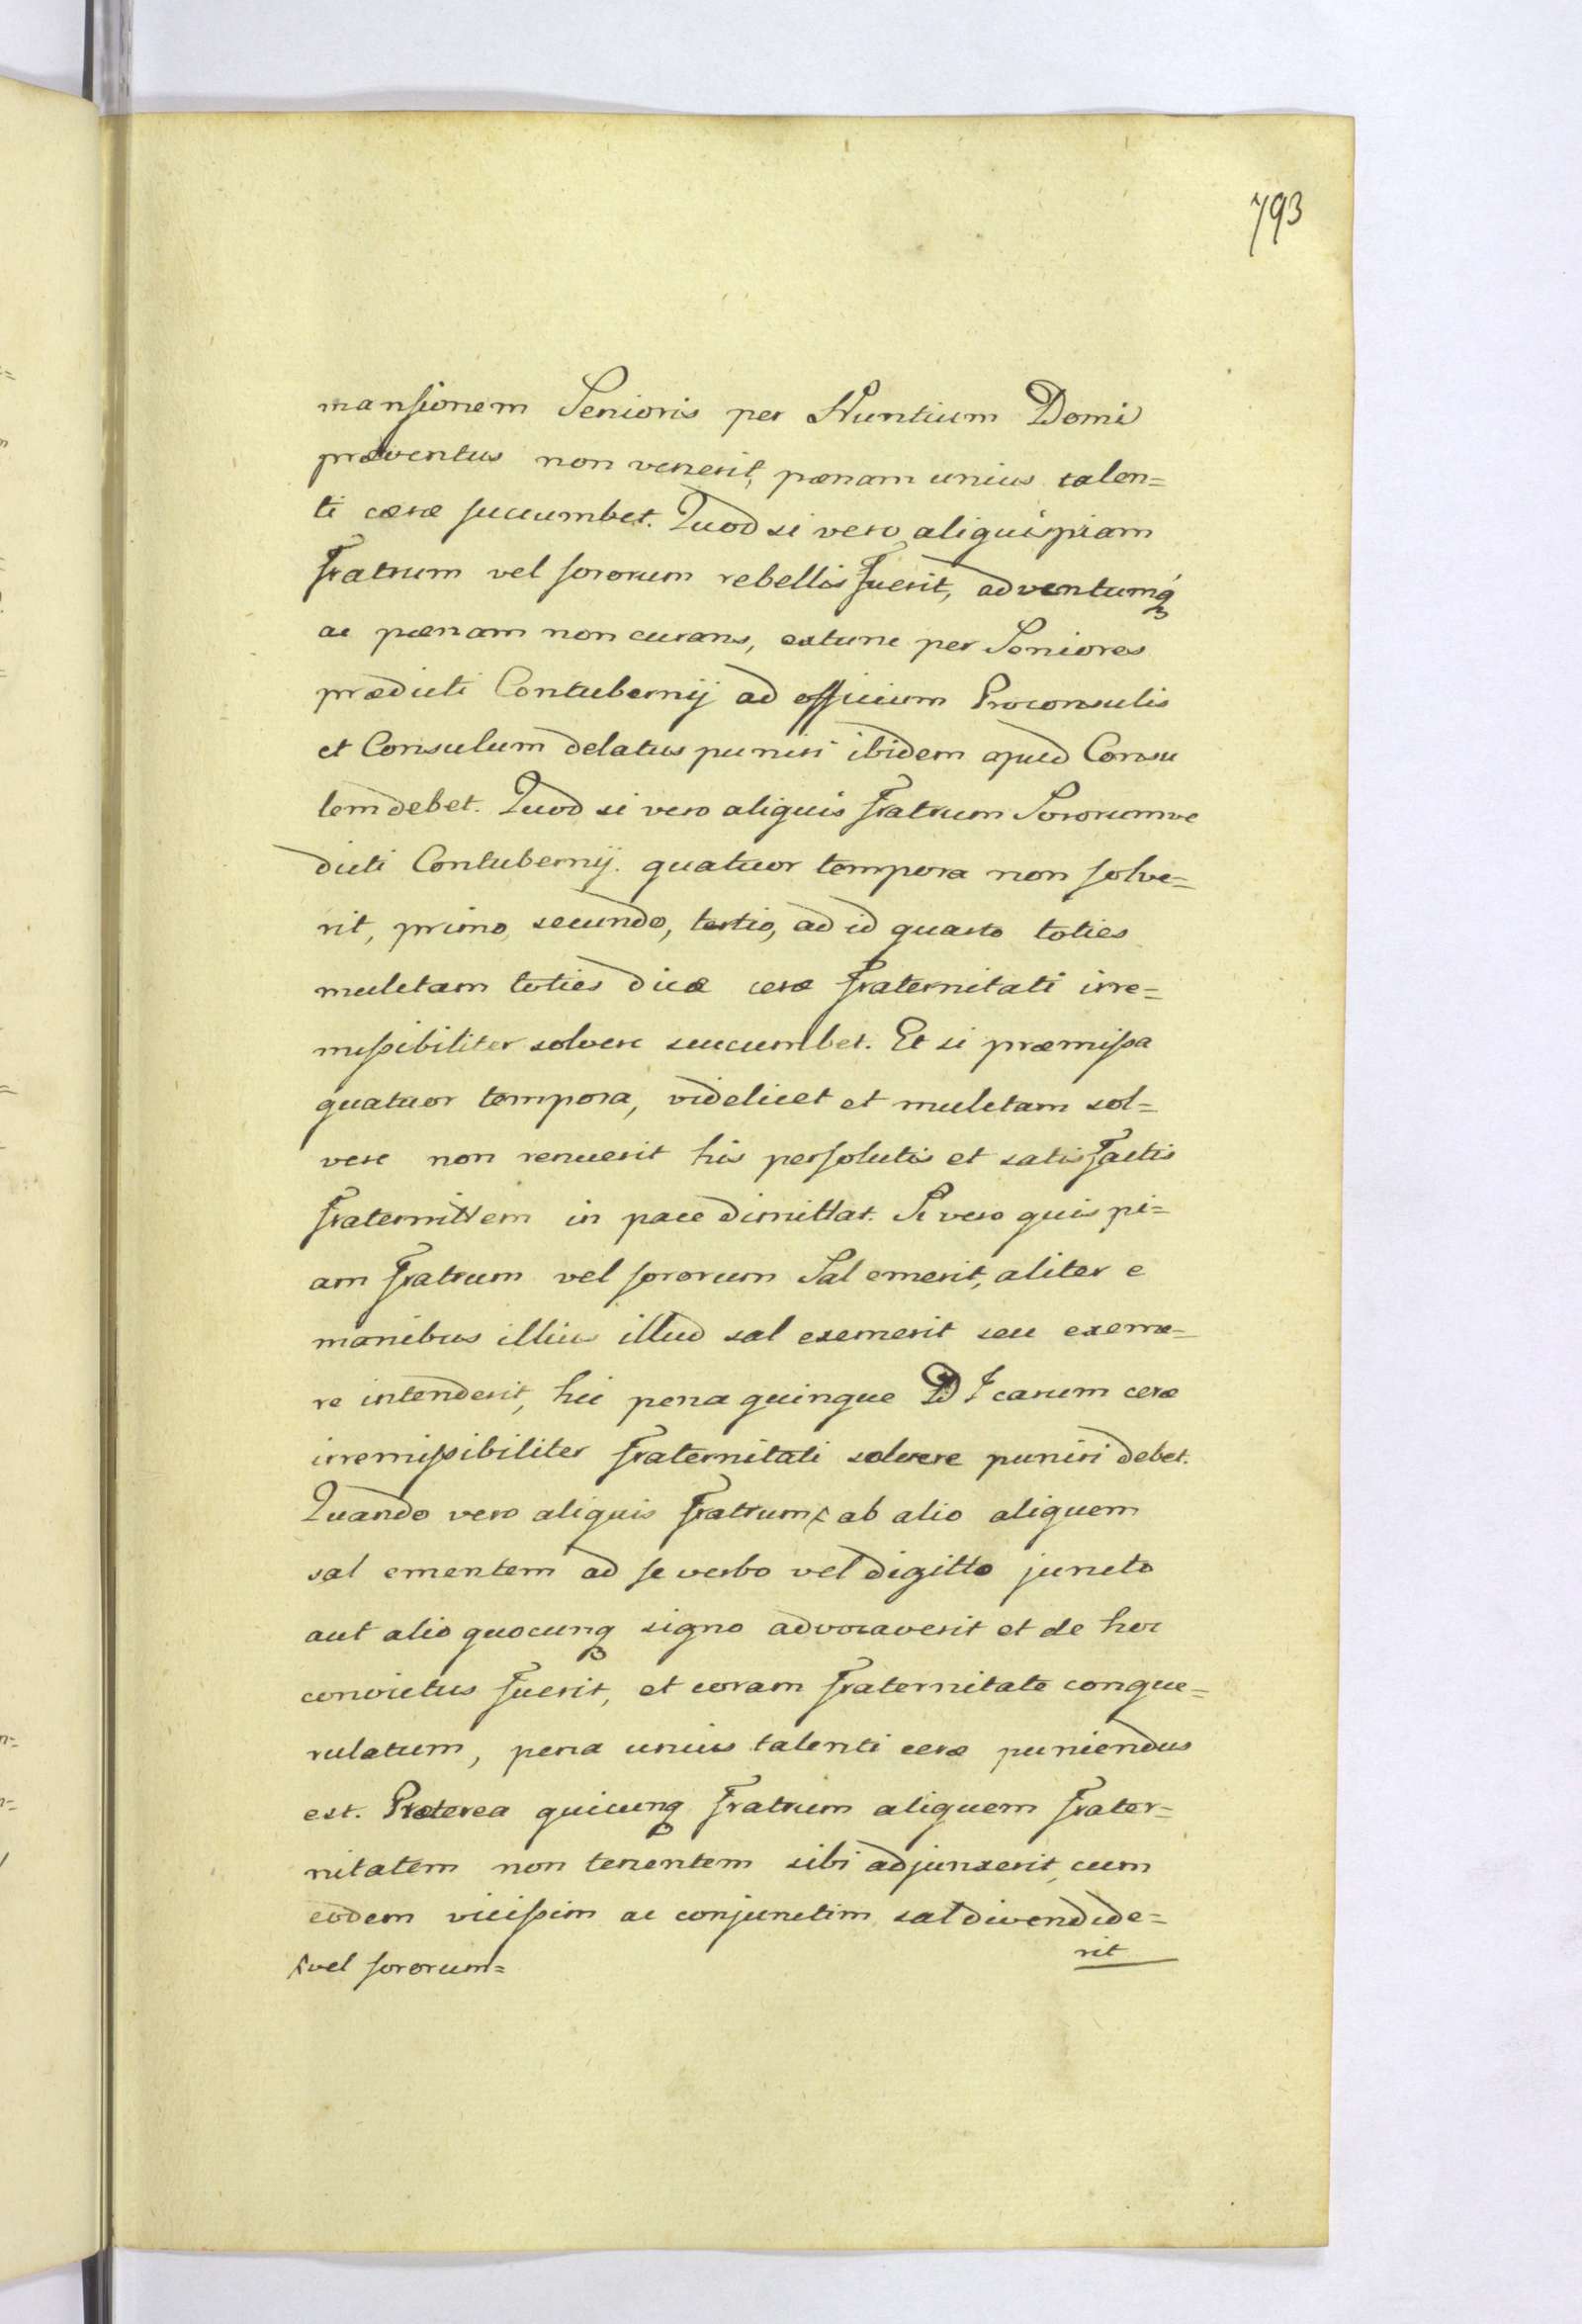 793
mansionem Senioris per Nuntium Domi
præventus non venerit, pœnam unius talen=
ti cæræ succumbet. Quod si vero aliquispiam
Fratrum vel sororum rebellis fuerit, adventumq́
ac pœnam non curans, extunc per Seniores
prædicti Contubernij ad officium Proconsulis
et Consulum delatus puniri ibidem apud Consu
lem debet. Quod si vero aliquis Fratrum Sororumve
dicti Contubernij. quatuor tempora non solve=
rit, primo secundo, tertio, ad id quarto toties
mulctam toties dicæ ceræ Fraternitati irre=
missibiliter solvere succumbet. Et si præmissa
quatuor tempora, videlicet et mulctam sol=
vere non renuerit his persolutis et satisfactis
Fraternittem in pace dimittat. Si vero quispi=
am Fratrum vel sororum Sal emerit, aliter e
manibus illius illud sal exemerit seu exeme=
re intenderit, hic pena quinque D carum ceræ
irremissibiliter Fraternitati solvere puniri debet.
Quando vero aliquis Fratrum x ab alio aliquem
sal ementem ad se verbo vel digitto juncto
aut alio quocunq signo advocaverit et de hoc
convictus fuerit, et coram Fraternitate conque=
rulatum, pena unius talenti ceræ puniendus
est. Præterea quicunq Fratrum aliquem Frater=
nitatem non tenentem sibi adjunxerit, cum
eodem vicissim ac conjunctim sal divendide=
rit
x vel sororum=